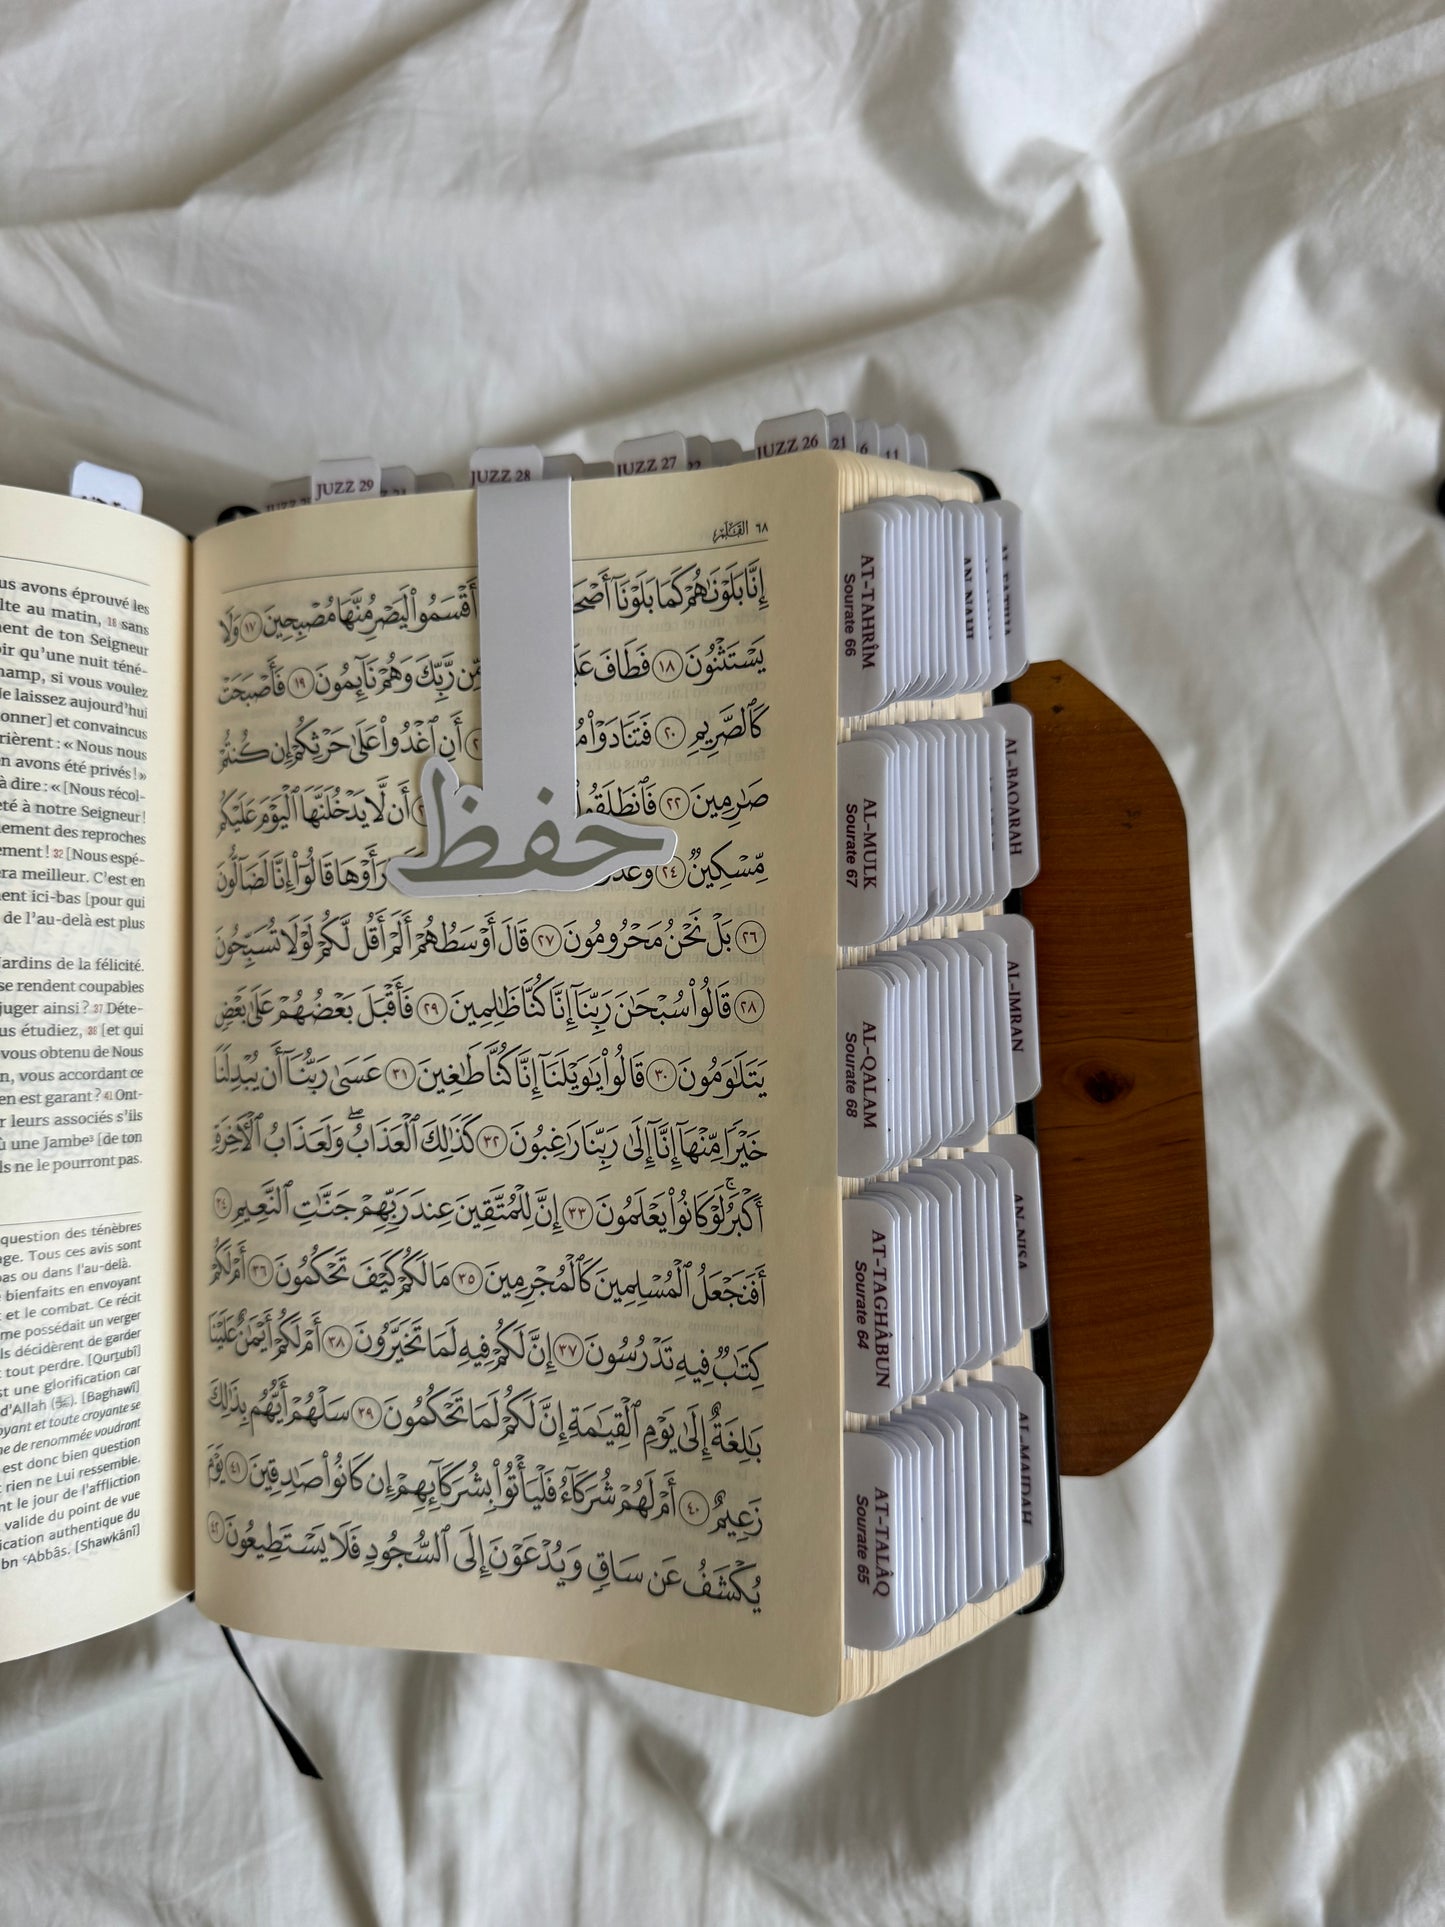 JUZZ 29
JUZZ 28
JUZZ 27
22
JUZZ 26
21
6
11
٦٨ القلم
إِنَّا بَلَوْنَٰهُمْ كَمَا بَلَوْنَآ أَقْسَمُوا۟ لَيَصْرِمُنَّهَا مُصْبِحِينَ ١٧ وَلَا
يَسْتَثْنُونَ ١٨ فَطَافَ رَّبِّكَ وَهُمْ نَآئِمُونَ ١٩ فَأَصْبَحَتْ
كَٱلصَّرِيمِ ٢٠ أَنِ ٱغْدُوا۟ عَلَىٰ حَرْثِكُمْ إِن كُنتُمْ
صَٰرِمِينَ ٢٢ فَٱنطَلَقُوا۟ أَن لَّا يَدْخُلَنَّهَا ٱلْيَوْمَ عَلَيْكُم
مِّسْكِينٌ ٢٤ رَأَوْهَا قَالُوٓا۟ إِنَّا لَضَآلُّونَ
حفظ
٢٦ بَلْ نَحْنُ مَحْرُومُونَ ٢٧ قَالَ أَوْسَطُهُمْ أَلَمْ أَقُل لَّكُمْ لَوْلَا تُسَبِّحُونَ
٢٨ قَالُوا۟ سُبْحَٰنَ رَبِّنَآ إِنَّا كُنَّا ظَٰلِمِينَ ٢٩ فَأَقْبَلَ بَعْضُهُمْ عَلَىٰ بَعْضٍ
يَتَلَٰوَمُونَ ٣٠ قَالُوا۟ يَٰوَيْلَنَآ إِنَّا كُنَّا طَٰغِينَ ٣١ عَسَىٰ رَبُّنَآ أَن يُبْدِلَنَا
خَيْرًا مِّنْهَآ إِنَّآ إِلَىٰ رَبِّنَا رَٰغِبُونَ ٣٢ كَذَٰلِكَ ٱلْعَذَابُ ۖ وَلَعَذَابُ ٱلْءَاخِرَةِ
أَكْبَرُ ۚ لَوْ كَانُوا۟ يَعْلَمُونَ ٣٣ إِنَّ لِلْمُتَّقِينَ عِندَ رَبِّهِمْ جَنَّٰتِ ٱلنَّعِيمِ ٣٤
أَفَنَجْعَلُ ٱلْمُسْلِمِينَ كَٱلْمُجْرِمِينَ ٣٥ مَا لَكُمْ كَيْفَ تَحْكُمُونَ ٣٦ أَمْ لَكُمْ
كِتَٰبٌ فِيهِ تَدْرُسُونَ ٣٧ إِنَّ لَكُمْ فِيهِ لَمَا تَخَيَّرُونَ ٣٨ أَمْ لَكُمْ أَيْمَٰنٌ عَلَيْنَا
بَٰلِغَةٌ إِلَىٰ يَوْمِ ٱلْقِيَٰمَةِ إِنَّ لَكُمْ لَمَا تَحْكُمُونَ ٣٩ سَلْهُمْ أَيُّهُم بِذَٰلِكَ
زَعِيمٌ ٤٠ أَمْ لَهُمْ شُرَكَآءُ فَلْيَأْتُوا۟ بِشُرَكَآئِهِمْ إِن كَانُوا۟ صَٰدِقِينَ ٤١ يَوْمَ
يُكْشَفُ عَن سَاقٍ وَيُدْعَوْنَ إِلَى ٱلسُّجُودِ فَلَا يَسْتَطِيعُونَ ٤٢
avons éprouvé les
au matin, 18 sans
de ton Seigneur
qu'une nuit téné-
si vous voulez
laissez aujourd'hui
et convaincus
« Nous nous
avons été privés ! »
à dire : « [Nous récol-
à notre Seigneur !
des reproches
32 [Nous espé-
meilleur. C'est en
ici-bas [pour qui
de l'au-delà est plus
jardins de la félicité.
se rendent coupables
juger ainsi ? 37 Déte-
étudiez, 38 [et qui
vous obtenu de Nous
vous accordant ce
en est garant ? 41 Ont-
leurs associés s'ils
une Jambe³ [de ton
ne le pourront pas.
question des ténèbres
Tous ces avis sont
ou dans l'au-delà.
bienfaits en envoyant
et le combat. Ce récit
possédait un verger
décidèrent de garder
tout perdre. [Qurṭubî]
une glorification car
d'Allah (ﷻ). [Baghawî]
et toute croyante se
de renommée voudront
est donc bien question
rien ne Lui ressemble.
le jour de l'affliction
valide du point de vue
authentique du
ʿAbbâs. [Shawkânî]
AT-TAHRÎM
Sourate 66
AL-MULK
Sourate 67
AL-QALAM
Sourate 68
AT-TAGHÂBUN
Sourate 64
AT-TALÂQ
Sourate 65
AN-NAHL
AL-BAQARAH
AL-IMRAN
AN-NISA
AL-MAIDAH